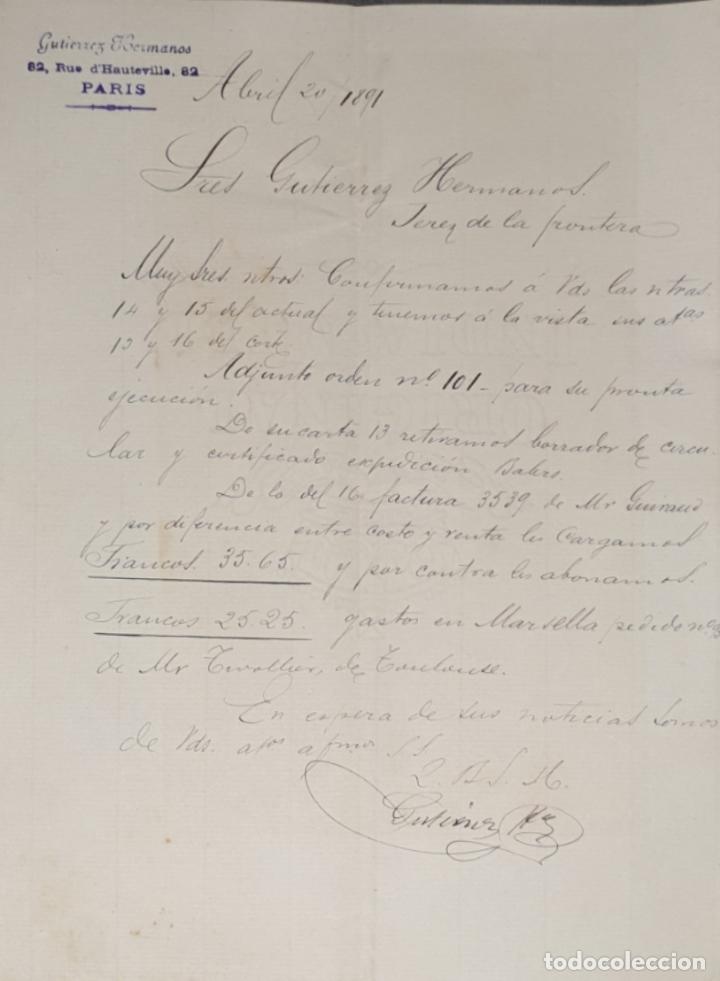 Gutierrez Hermanos
82, Rue d'Hauteville, 82
PARIS
Abril 20/1891
Sres Gutierrez Hermanos.
Jerez de la frontera
Muy Sres. ntros: Confirmamos á Vds las ntras.
14 y 15 del actual y tenemos á la vista sus atas
13 y 16 del corte.
Adjunto orden nº 101 - para su pronta
ejecución.
De su carta 13 retiramos borrador de circu-
lar y certificado expedición Balers.
De lo del 16 factura 3539 de Mr Guiraud
y por diferencia entre costo y venta les Cargamos
Francos. 35.65. y por contra les abonamos.
Francos 25.25. gastos en Marsella pedido nº
de Mr Tivollier, de Toulouse.
En espera de sus noticias somos
de Vds. atos afmos SS
Q. B. S. M.
Gutierrez Hos
todocoleccion.net